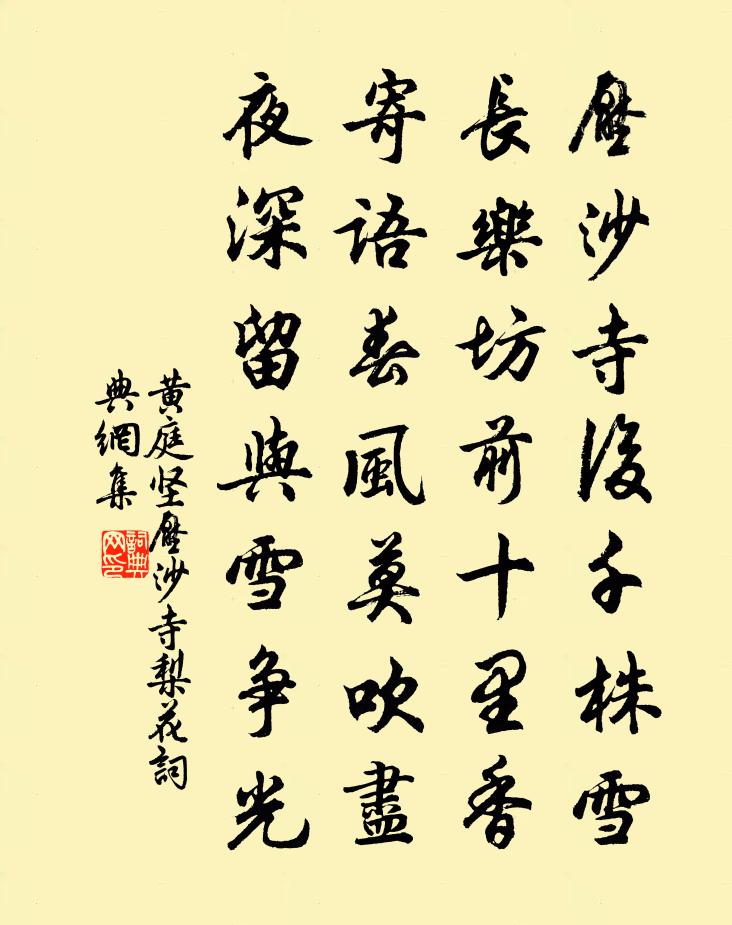 壓沙寺後千株雪
長樂坊前十里香
寄語春風莫吹盡
夜深留與雪争光
黄庭坚壓沙寺梨花詞
典網集
詞典
网印